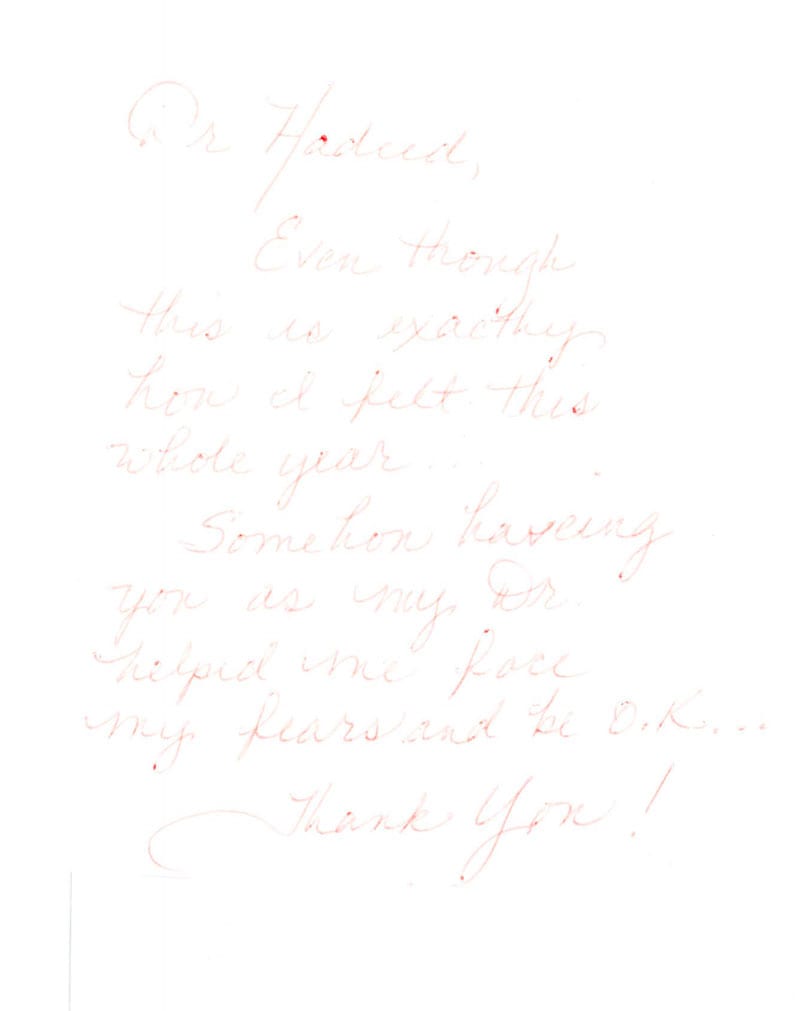 Dr Hadeed,
Even though
this is exactly
how I felt this
whole year...
Somehow haveing
you as my Dr.
helped me face
my fears and be O.K....
Thank You!